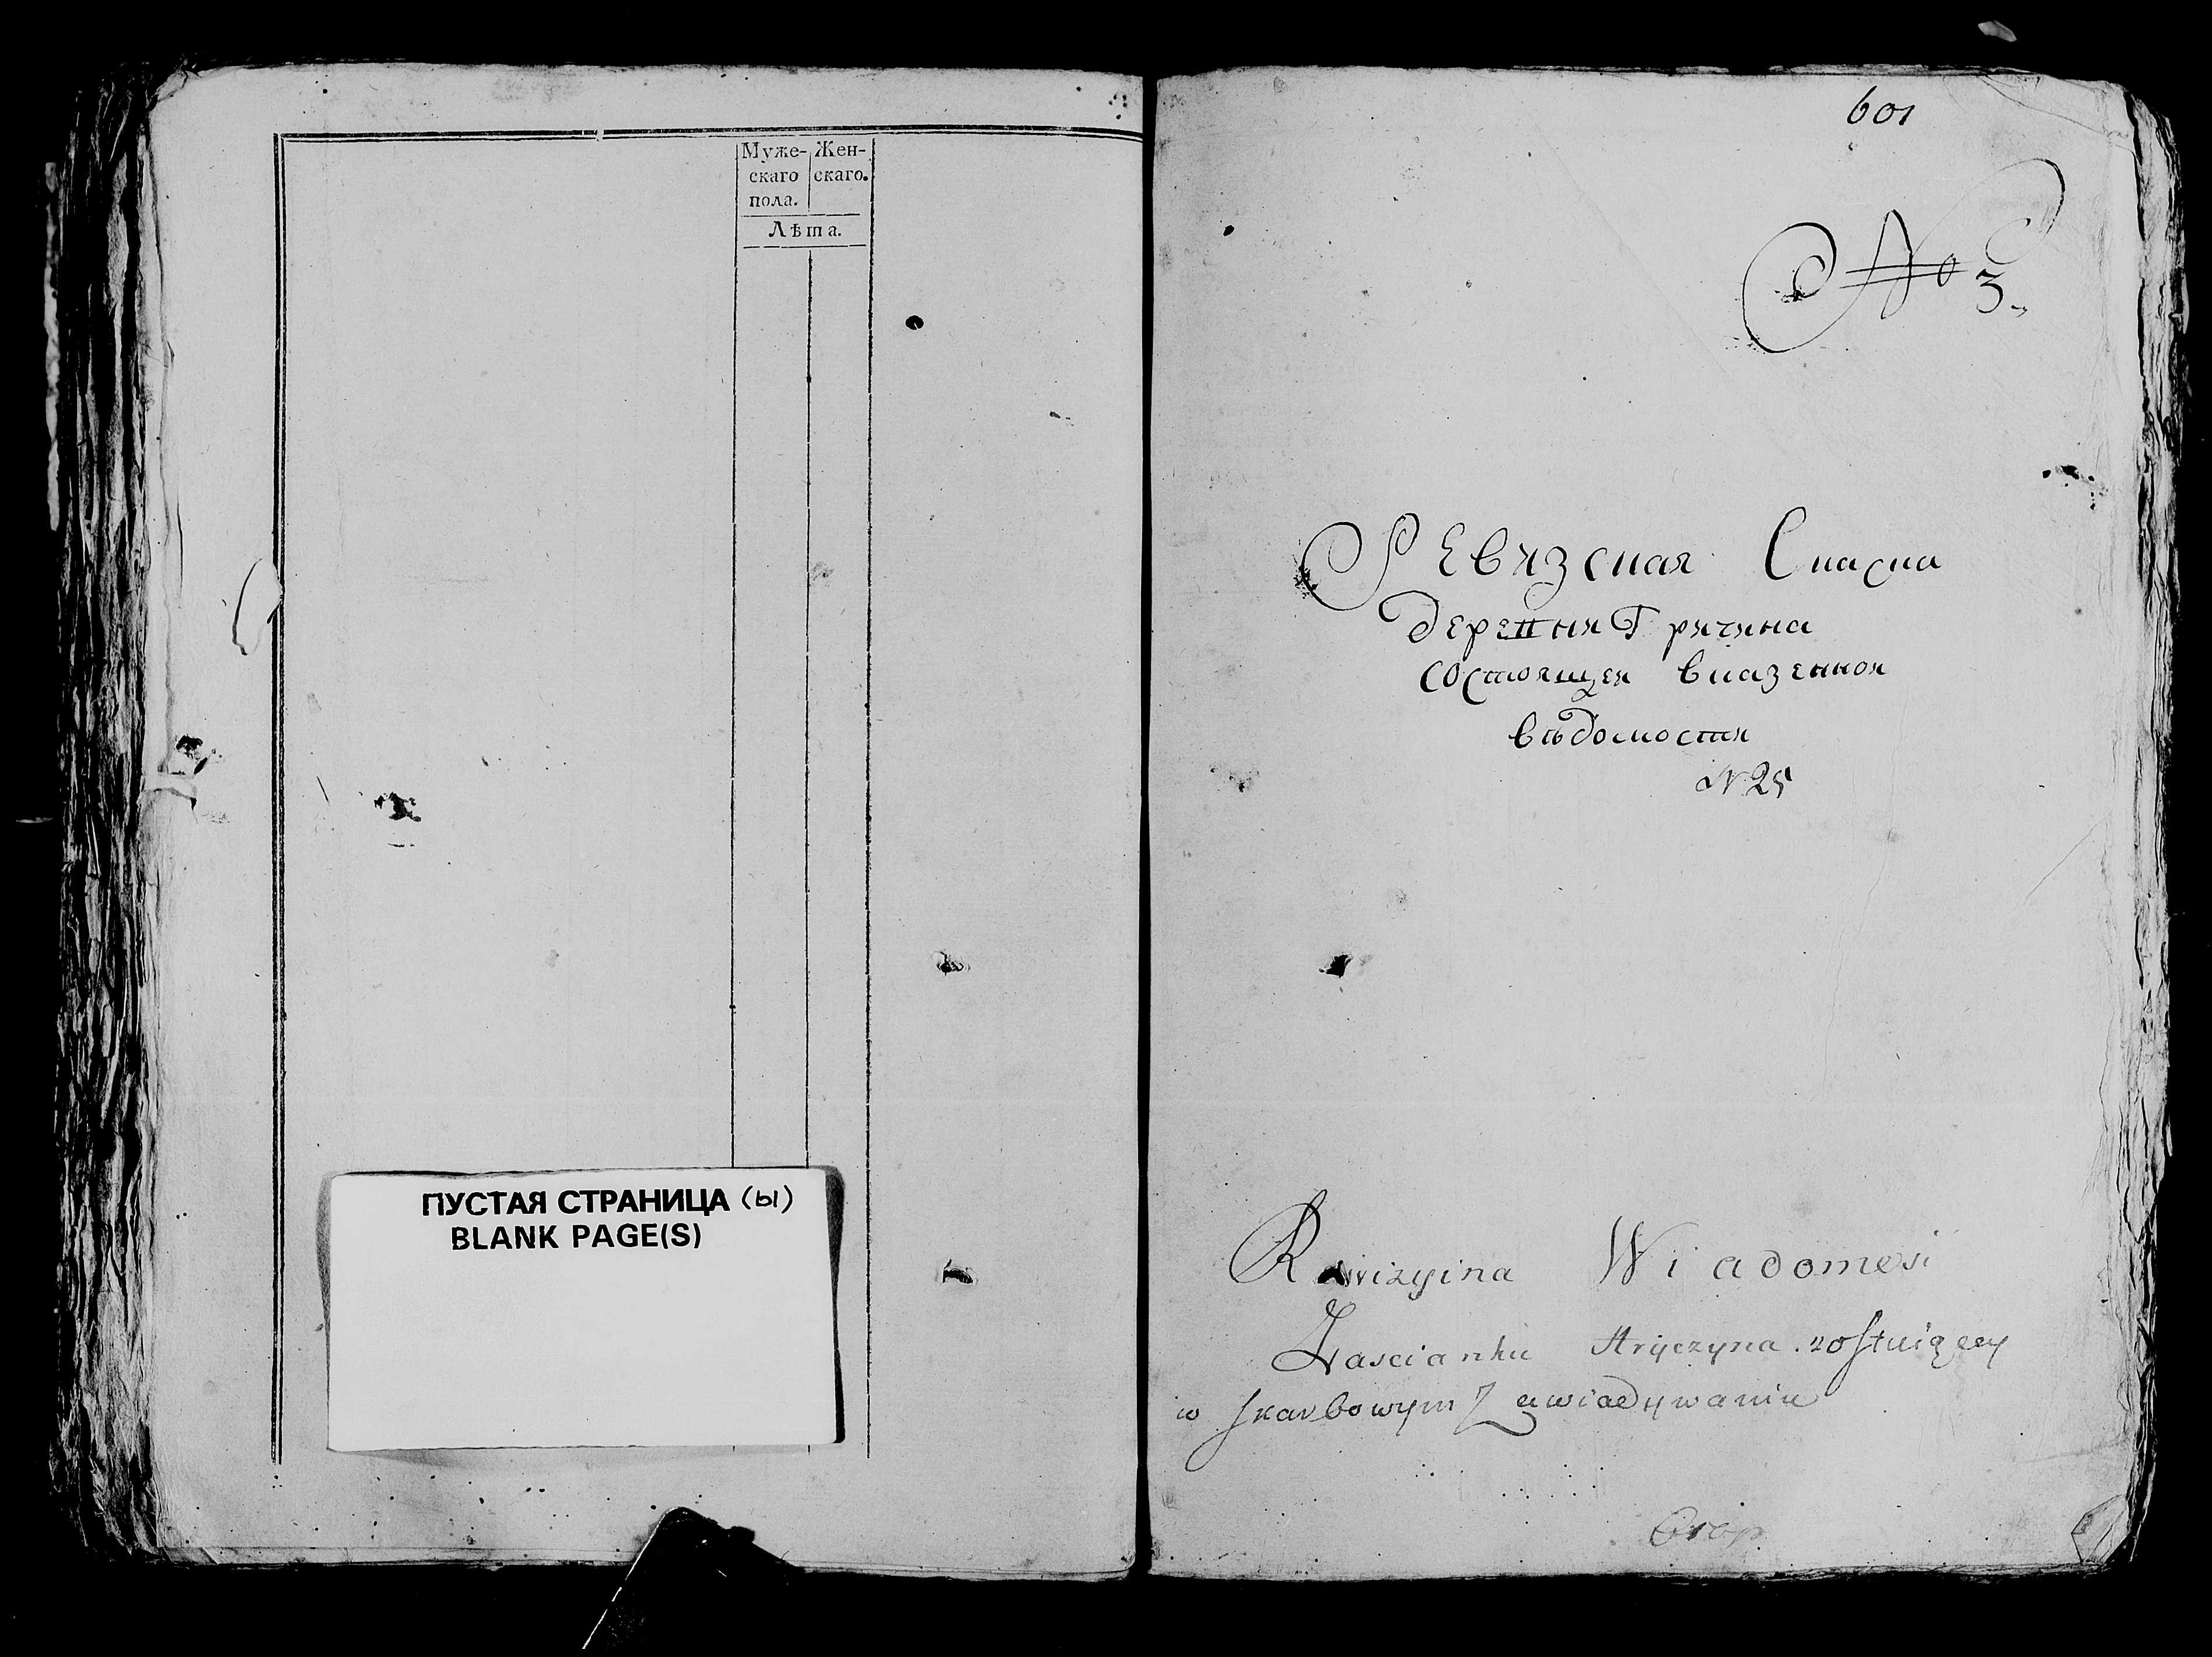 Муже-
скаго
пола.
Жен-
скаго.
Лѣта.
ПУСТАЯ СТРАНИЦА (ы)
BLANK PAGE(S)
601
No 3.
Ревизская Сказка
деревни Гричина
состоящей вказенной
вѣдомости
N 25
Rewizyina Wiadomosi
Zascianku Hryczyna zostuiącey
w skarbowym Zawiadywaniu